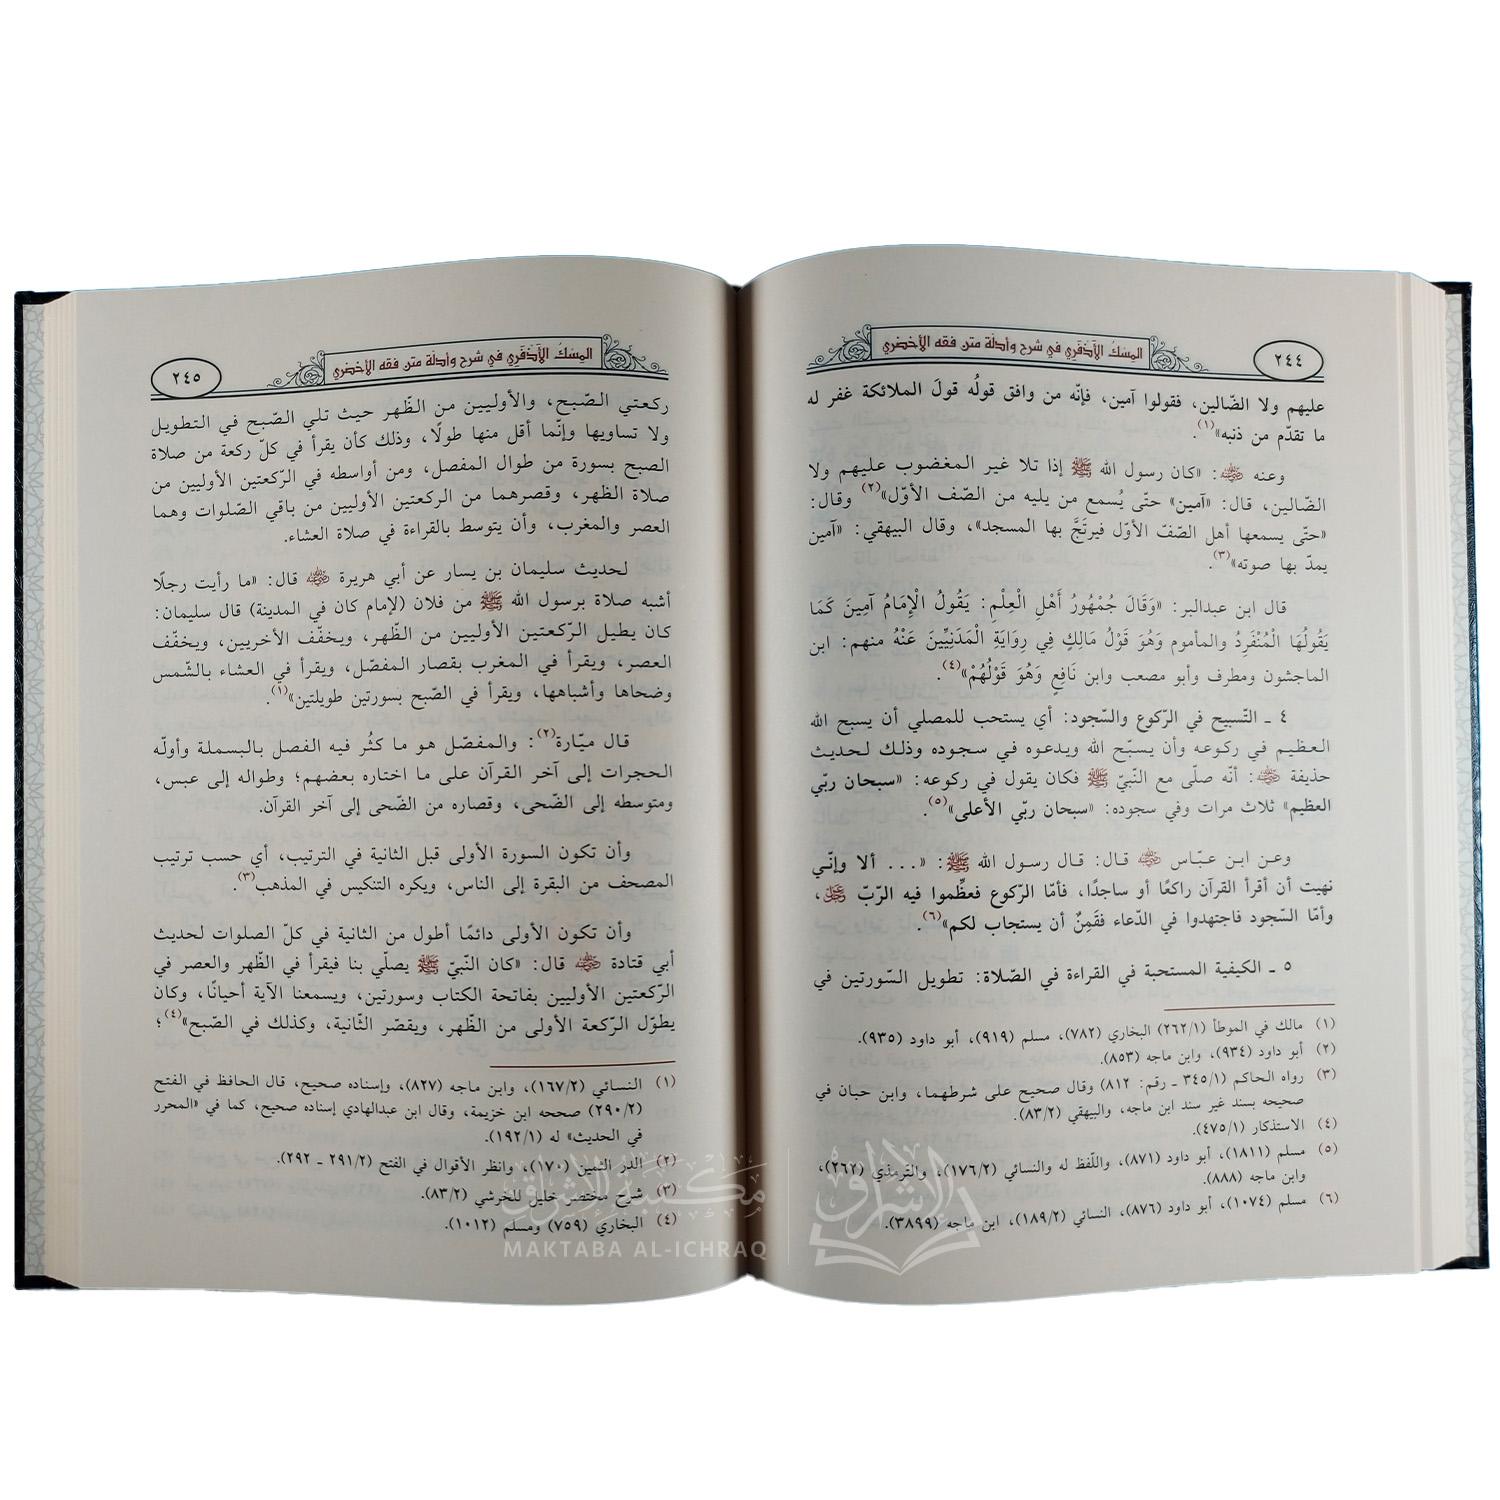 المسك الأذفري في شرح وأدلة متن فقه الأخضري
٢٤٤
عليهم ولا الضّالين، فقولوا آمين، فإنّه من وافق قولُه قولَ الملائكة غفر له
ما تقدّم من ذنبه»(١).
وعنه رضي الله عنه: «كان رسول الله ﷺ إذا تلا غير المغضوب عليهم ولا
الضّالين، قال: «آمين» حتّى يُسمع من يليه من الصّف الأوّل»(٢) وقال:
«حتّى يسمعها أهل الصّفّ الأوّل فيرتَجَّ بها المسجد»، وقال البيهقي: «آمين
يمدّ بها صوته»(٣).
قال ابن عبدالبر: «وَقَالَ جُمْهُورُ أَهْلِ الْعِلْمِ: يَقُولُ الْإِمَامُ آمِينَ كَمَا
يَقُولُهَا الْمُنْفَرِدُ والمأموم وَهُوَ قَوْلُ مَالِكٍ فِي رِوَايَةِ الْمَدَنِيِّينَ عَنْهُ منهم: ابن
الماجشون ومطرف وأبو مصعب وابن نَافِعٍ وَهُوَ قَوْلُهُمْ»(٤).
٤ ـ التّسبيح في الرّكوع والسّجود: أي يستحب للمصلي أن يسبح الله
العظيم في ركوعه وأن يسبّح الله ويدعوه في سجوده وذلك لحديث
حذيفة رضي الله عنه: أنّه صلّى مع النّبيّ ﷺ فكان يقول في ركوعه: «سبحان ربّي
العظيم» ثلاث مرات وفي سجوده: «سبحان ربّي الأعلى»(٥).
وعن ابن عبّاس رضي الله عنه قال: قال رسول الله ﷺ: «... ألا وإنّي
نهيت أن أقرأ القرآن راكعًا أو ساجدًا، فأمّا الرّكوع فعظِّموا فيه الرّبّ عز وجل،
وأمّا السّجود فاجتهدوا في الدّعاء فقَمِنٌ أن يستجاب لكم»(٦).
٥ ـ الكيفية المستحبة في القراءة في الصّلاة: تطويل السّورتين في
(١) مالك في الموطأ (٢٦٢/١) البخاري (٧٨٢)، مسلم (٩١٩)، أبو داود (٩٣٥).
(٢) أبو داود (٩٣٤)، وابن ماجه (٨٥٣).
(٣) رواه الحاكم (٣٤٥/١ ـ رقم: ٨١٢) وقال صحيح على شرطهما، وابن حبان في
صحيحه بسند غير سند ابن ماجه، والبيهقي (٨٣/٢).
(٤) الاستذكار (٤٧٥/١).
(٥) مسلم (١٨١١)، أبو داود (٨٧١)، واللّفظ له والنسائي (١٧٦/٢)، والتّرمذي (٢٦٢)،
وابن ماجه (٨٨٨).
(٦) مسلم (١٠٧٤)، أبو داود (٨٧٦)، النسائي (١٨٩/٢)، ابن ماجه (٣٨٩٩).
المسك الأذفري في شرح وأدلة متن فقه الأخضري
٢٤٥
ركعتي الصّبح، والأوليين من الظّهر حيث تلي الصّبح في التطويل
ولا تساويها وإنّما أقل منها طولًا، وذلك كأن يقرأ في كلّ ركعة من صلاة
الصبح بسورة من طوال المفصل، ومن أواسطه في الرّكعتين الأوليين من
صلاة الظهر، وقصرهما من الركعتين الأوليين من باقي الصّلوات وهما
العصر والمغرب، وأن يتوسط بالقراءة في صلاة العشاء.
لحديث سليمان بن يسار عن أبي هريرة رضي الله عنه قال: «ما رأيت رجلًا
أشبه صلاة برسول الله ﷺ من فلان (لإمام كان في المدينة) قال سليمان:
كان يطيل الرّكعتين الأوليين من الظّهر، ويخفّف الأخريين، ويخفّف
العصر، ويقرأ في المغرب بقصار المفصّل، ويقرأ في العشاء بالشّمس
وضحاها وأشباهها، ويقرأ في الصّبح بسورتين طويلتين»(١).
قال ميّارة(٢): والمفصّل هو ما كثُر فيه الفصل بالبسملة وأولّه
الحجرات إلى آخر القرآن على ما اختاره بعضهم؛ وطواله إلى عبس،
ومتوسطه إلى الضّحى، وقصاره من الضّحى إلى آخر القرآن.
وأن تكون السورة الأولى قبل الثانية في الترتيب، أي حسب ترتيب
المصحف من البقرة إلى الناس، ويكره التنكيس في المذهب(٣).
وأن تكون الأولى دائمًا أطول من الثانية في كلّ الصلوات لحديث
أبي قتادة رضي الله عنه قال: «كان النّبيّ ﷺ يصلّي بنا فيقرأ في الظّهر والعصر في
الرّكعتين الأوليين بفاتحة الكتاب وسورتين، ويسمعنا الآية أحيانًا، وكان
يطوّل الرّكعة الأولى من الظّهر، ويقصّر الثّانية، وكذلك في الصّبح»(٤)؛
(١) النسائي (١٦٧/٢)، وابن ماجه (٨٢٧)، وإسناده صحيح، قال الحافظ في الفتح
(٢٩٠/٢) صححه ابن خزيمة، وقال ابن عبدالهادي إسناده صحيح، كما في «المحرر
في الحديث» له (١٩٢/١).
(٢) الدر الثمين (١٧٠)، وانظر الأقوال في الفتح (٢٩١/٢ ـ ٢٩٢).
(٣) شرح مختصر خليل للخرشي (٨٣/٢).
(٤) البخاري (٧٥٩) ومسلم (١٠١٢).
مكتبة الإشراق
MAKTABA AL-ICHRAQ
الإشراق